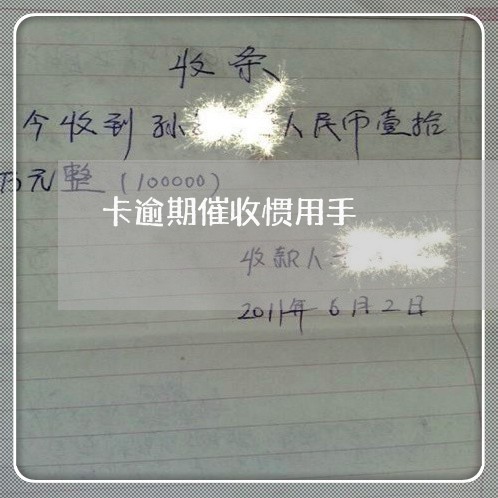 收条
今收到孙 人民币壹拾
万元整(100000)
卡逾期催收惯用手
收款人
2011年6月2日